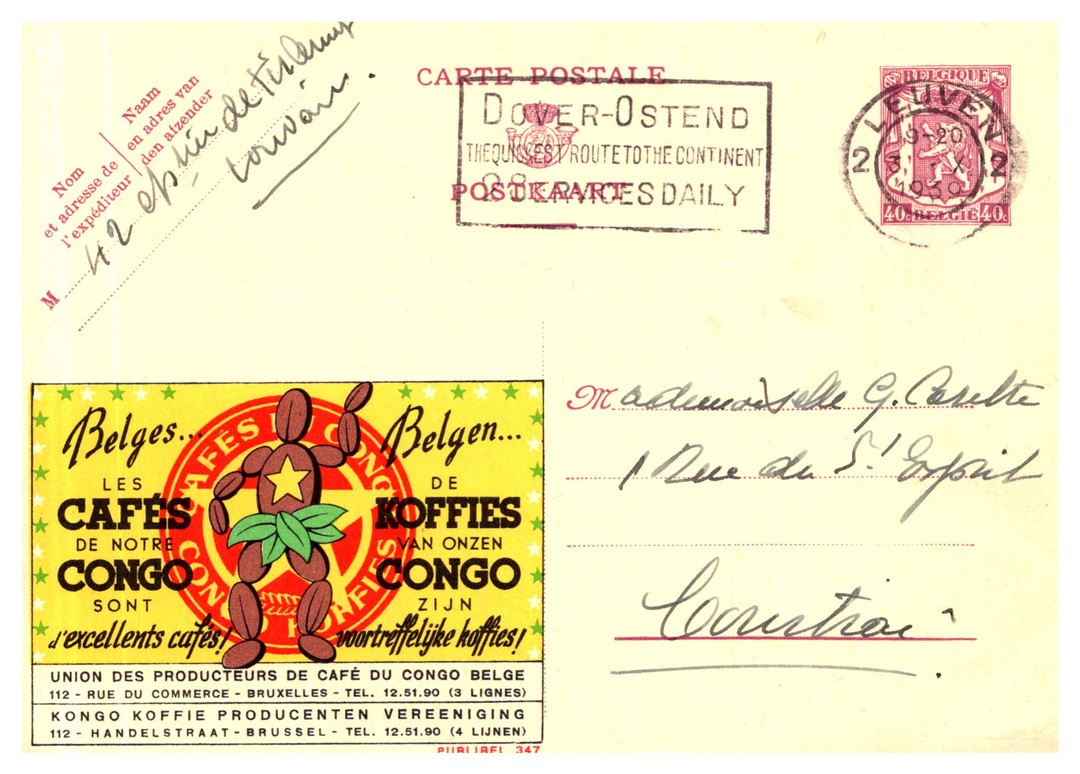 CARTE POSTALE
POSTKAART
DOVER-OSTEND
THE QUICKEST ROUTE TO THE CONTINENT
SERVICES DAILY
BELGIQUE
LEUVEN
2 2
9-20
40c BELGIË 40c
Nom
et adresse de
l'expéditeur
Naam
en adres van
den afzender
M
42
de
Louvain.
Mademoiselle G.
1 Rue du St Esprit
Courtrai
Belges...
LES
CAFÉS
DE NOTRE
CONGO
SONT
d'excellents cafés!
CAFÉS DU CONGO
CONGO KOFFIES
Belgen...
DE
KOFFIES
VAN ONZEN
CONGO
ZIJN
voortreffelijke koffies!
UNION DES PRODUCTEURS DE CAFÉ DU CONGO BELGE
112 - RUE DU COMMERCE - BRUXELLES - TEL. 12.51.90 (3 LIGNES)
KONGO KOFFIE PRODUCENTEN VEREENIGING
112 - HANDELSTRAAT - BRUSSEL - TEL. 12.51.90 (4 LIJNEN)
PUBLIBEL 347